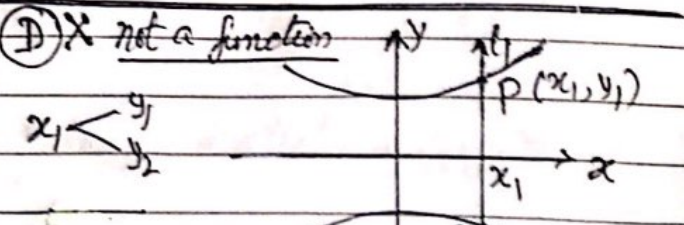 D X not a function
y
l1
P (x1, y1)
x1 < y1
y2
x1
x